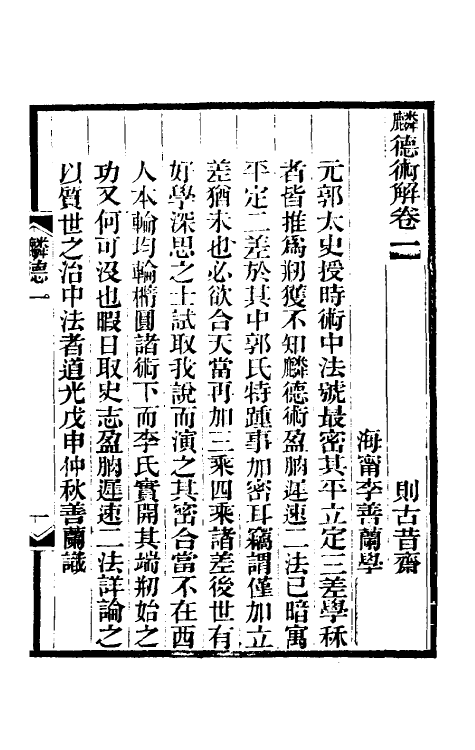 麟德術解卷一
則古昔齋
海甯李善蘭學
元郭太史授時術中法號最密其平立定三差學秝
者皆推爲刱獲不知麟德術盈朒遲速二法已暗寓
平定二差於其中郭氏特踵事加密耳竊謂僅加立
差猶未也必欲合天當再加三乘四乘諸差後世有
好學深思之士試取我說而演之其密合當不在西
人本輪均輪橢圓諸術下而李氏實開其端刱始之
功又何可沒也暇日取史志盈朒遲速二法詳論之
以質世之治中法者道光戊申仲秋善蘭識
麟德一
一